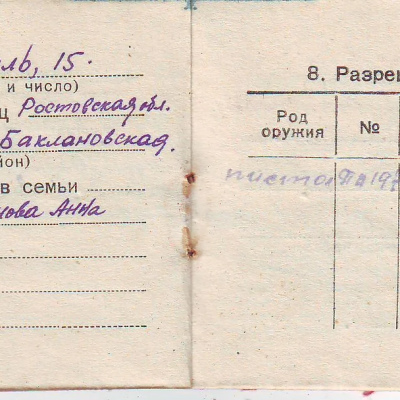 ль, 15.
и число)
ц Ростовская обл.
Баклановская.
он)
в семьи
нова Анна
8. Разре
Род оружия
№
писто